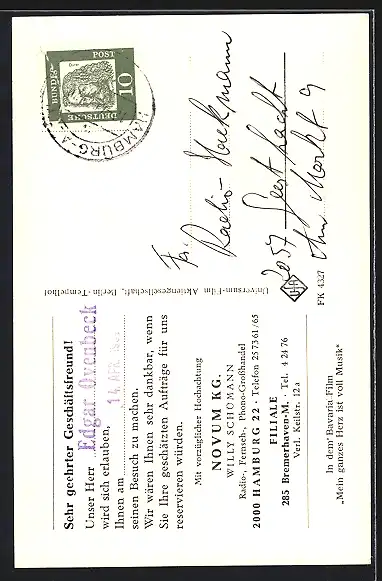 Sehr geehrter Geschäftsfreund!
Unser Herr Edgar Ovenbeck
wird sich erlauben,
Ihnen am 14. APR.
seinen Besuch zu machen.
Wir wären Ihnen sehr dankbar, wenn
Sie Ihre geschätzten Aufträge für uns
reservieren würden.
Mit vorzüglicher Hochachtung
NOVUM KG.
WILLY SCHOMANN
Radio-, Fernseh-, Phono-Großhandel
2000 HAMBURG 22 · Telefon 25 73 61/65
FILIALE
285 Bremerhaven-M. · Tel. 4 24 76
Verl. Keilstr. 12a
In dem Bavaria-Film
„Mein ganzes Herz ist voll Musik"
Universum-Film Aktiengesellschaft, Berlin-Tempelhof
DEUTSCHE
BUNDES
POST
10
HAMBURG
Fa.
Radio-
2057 Geesthacht
Am Markt 9
FK 4327